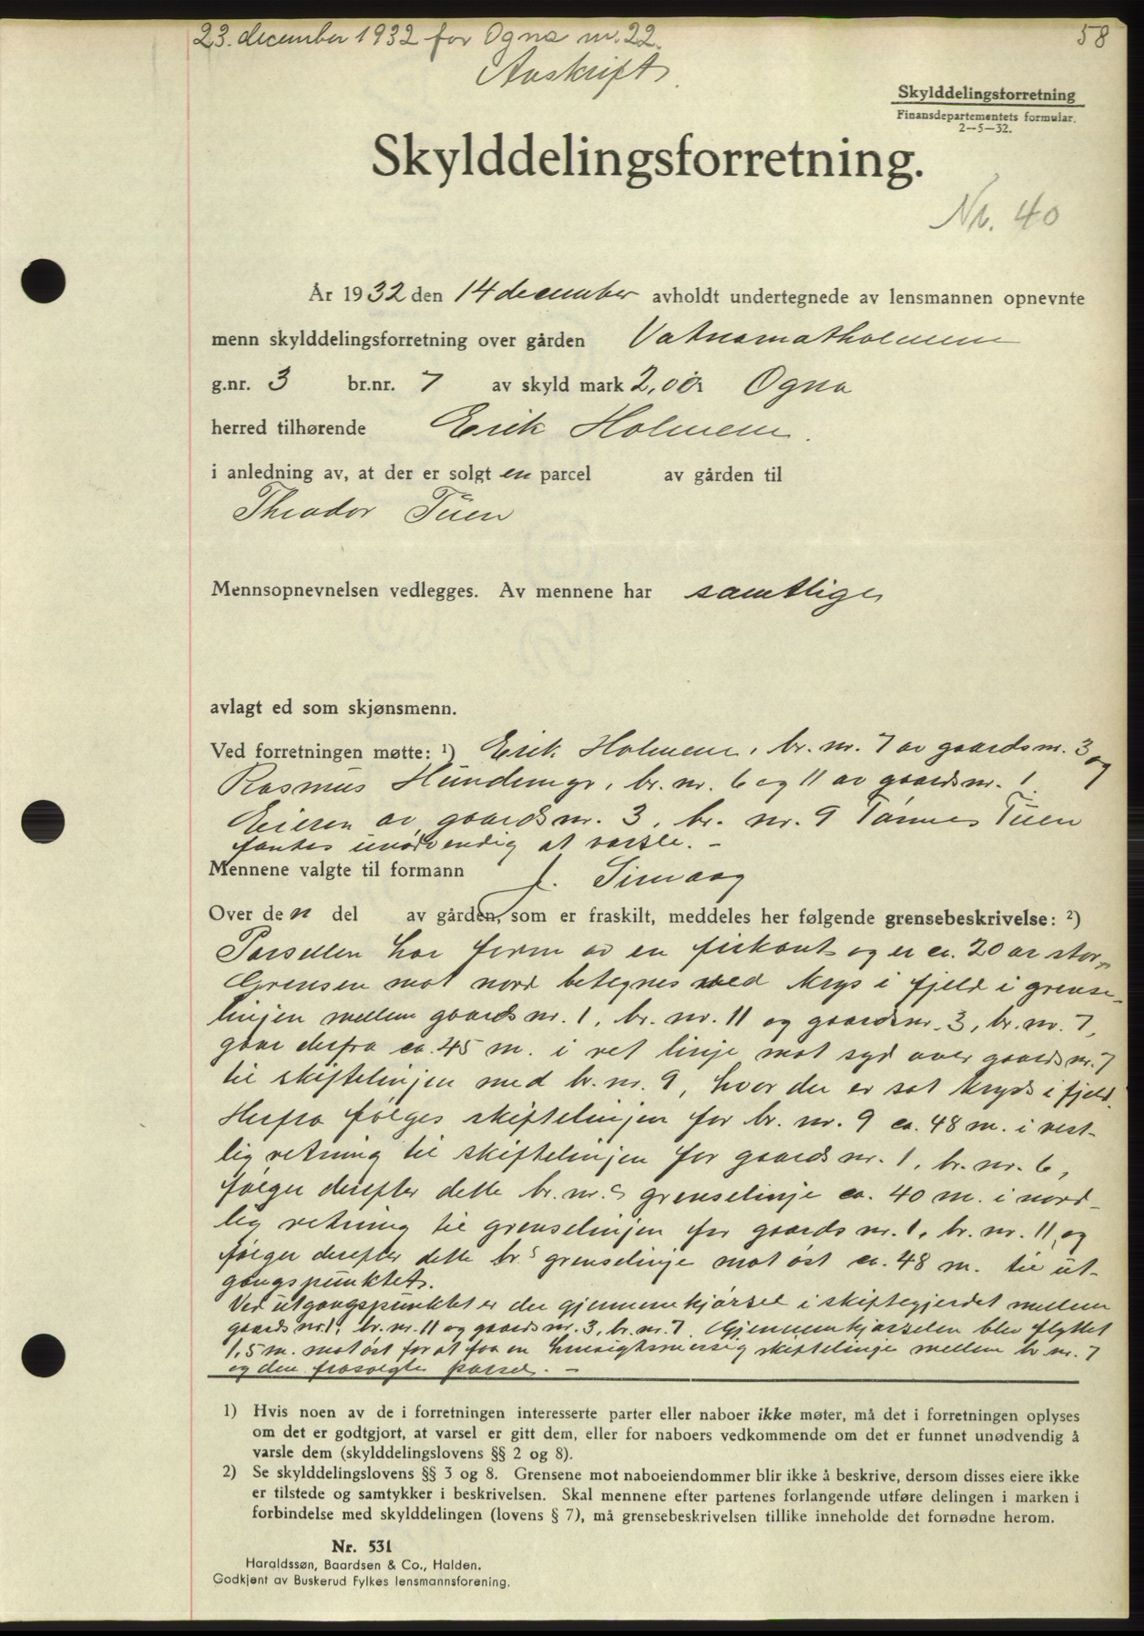 23. december 1932 for Ogna nr. 22.
58
Avskrift.
Skylddelingsforretning
Finansdepartementets formular.
2-5-32.
Skylddelingsforretning.
Nr. 40
År 1932 den 14 december avholdt undertegnede av lensmannen opnevnte
menn skylddelingsforretning over gården Vatnamotholmen
g.nr. 3 br.nr. 7 av skyld mark 2,00 i Ogna
herred tilhørende Erik Holmen.
i anledning av, at der er solgt en parcel av gården til
Theodor Tuen
Mennsopnevnelsen vedlegges. Av mennene har samtlige
avlagt ed som skjønsmenn.
Ved forretningen møtte: 1) Erik Holmen, br. nr. 7 av gaardsnr. 3 og
Rasmus br. nr. 6 og 11 av gaardsnr. 1
Eieren av gaardsnr. 3, br. nr. 9 Tønnes Tuen
fantes unødvendig at varsle. -
Mennene valgte til formann J. Sirevaag
Over den del av gården, som er fraskilt, meddeles her følgende grensebeskrivelse: 2)
Parsellen har form av en firkant og er ca. 20 ar stor.
Grensen mot nord betegnes ved krys i fjeld i grense-
linjen mellem gaardsnr. 1, br. nr. 11 og gaardsnr. 3, br. nr. 7,
gaar derfra ca. 45 m. i ret linje mot syd over gaardsnr. 7
til skiftelinjen med br. nr. 9, hvor der er sat kryds i fjeld.
Herfra følges skiftelinjen for br. nr. 9 ca. 48 m. i vest-
lig retning til skiftelinjen for gaardsnr. 1, br. nr. 6,
følger derefter dette br. nr.s grenselinje ca. 40 m. i nord-
lig retning til grenselinjen for gaardsnr. 1, br. nr. 11, og
følger derefter dette br.s grenselinje mot øst ca. 48 m. til ut-
gangspunktet.
Ved utgangspunktet er der gjennemkjørsel i skiftegjerdet mellem
gaardsnr. 1, br. nr. 11 og gaardsnr. 3, br. nr. 7. Gjennemkjørselen blev flyttet
1,5 m. mot øst for at faa en hensigtsmessig skiftelinje mellem br nr. 7
og den frasolgte parsel. -
1) Hvis noen av de i forretningen interesserte parter eller naboer ikke møter, må det i forretningen oplyses
om det er godtgjort, at varsel er gitt dem, eller for naboers vedkommende om det er funnet unødvendig å
varsle dem (skylddelingslovens §§ 2 og 8).
2) Se skylddelingslovens §§ 3 og 8. Grensene mot naboeiendommer blir ikke å beskrive, dersom disses eiere ikke
er tilstede og samtykker i beskrivelsen. Skal mennene efter partenes forlangende utføre delingen i marken i
forbindelse med skylddelingen (lovens § 7), må grensebeskrivelsen tillike inneholde det fornødne herom.
Nr. 531
Haraldssøn, Baardsen & Co., Halden.
Godkjent av Buskerud Fylkes lensmannsforening.